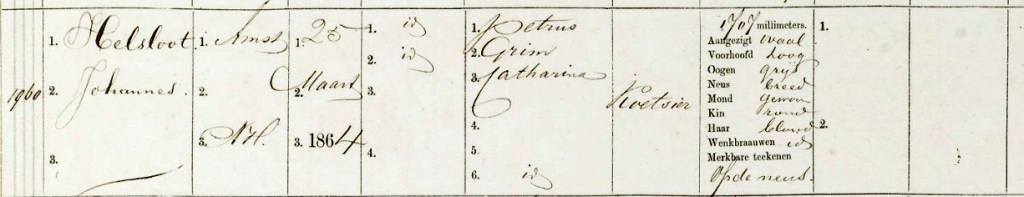 1960
1. Helsloot
2. Johannes.
3.
1. Amst
2.
3. N.H.
1. 25
2. Maart
3. 1864
1. id
2. id
3.
4.
1. Petrus
2. Grim
3. Catharina
4.
5.
6. id
Koetsier
1707 millimeters.
Aangezigt ovaal
Voorhoofd hoog
Oogen grijs
Neus breed
Mond gewoon
Kin rond
Haar blond
Wenkbraauwen id
Merkbare teekenen
Op de neus.
1.
2.